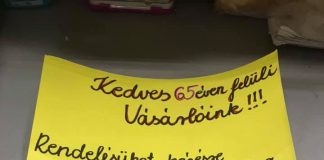 Kedves 65 éven felüli
Vásárlóink !!!
Rendelésüket